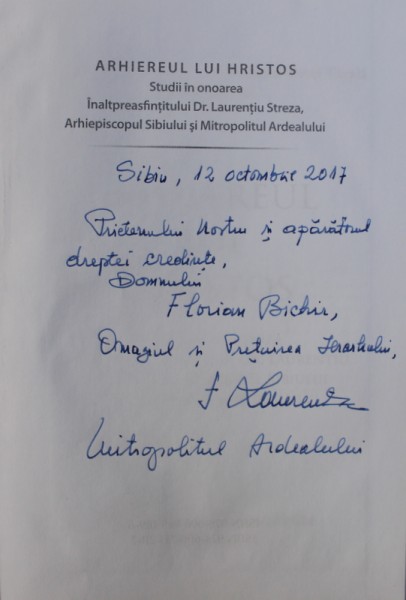 ARHIEREUL LUI HRISTOS
Studii în onoarea
Înaltpreasfințitului Dr. Laurențiu Streza,
Arhiepiscopul Sibiului și Mitropolitul Ardealului
Sibiu, 12 octombrie 2017
Prietenului nostru și apărătorul
dreptei credințe,
Domnului
Florian Bichir,
Omagiul și Prețuirea Ierarhului,
† Laurențiu
Mitropolitul Ardealului